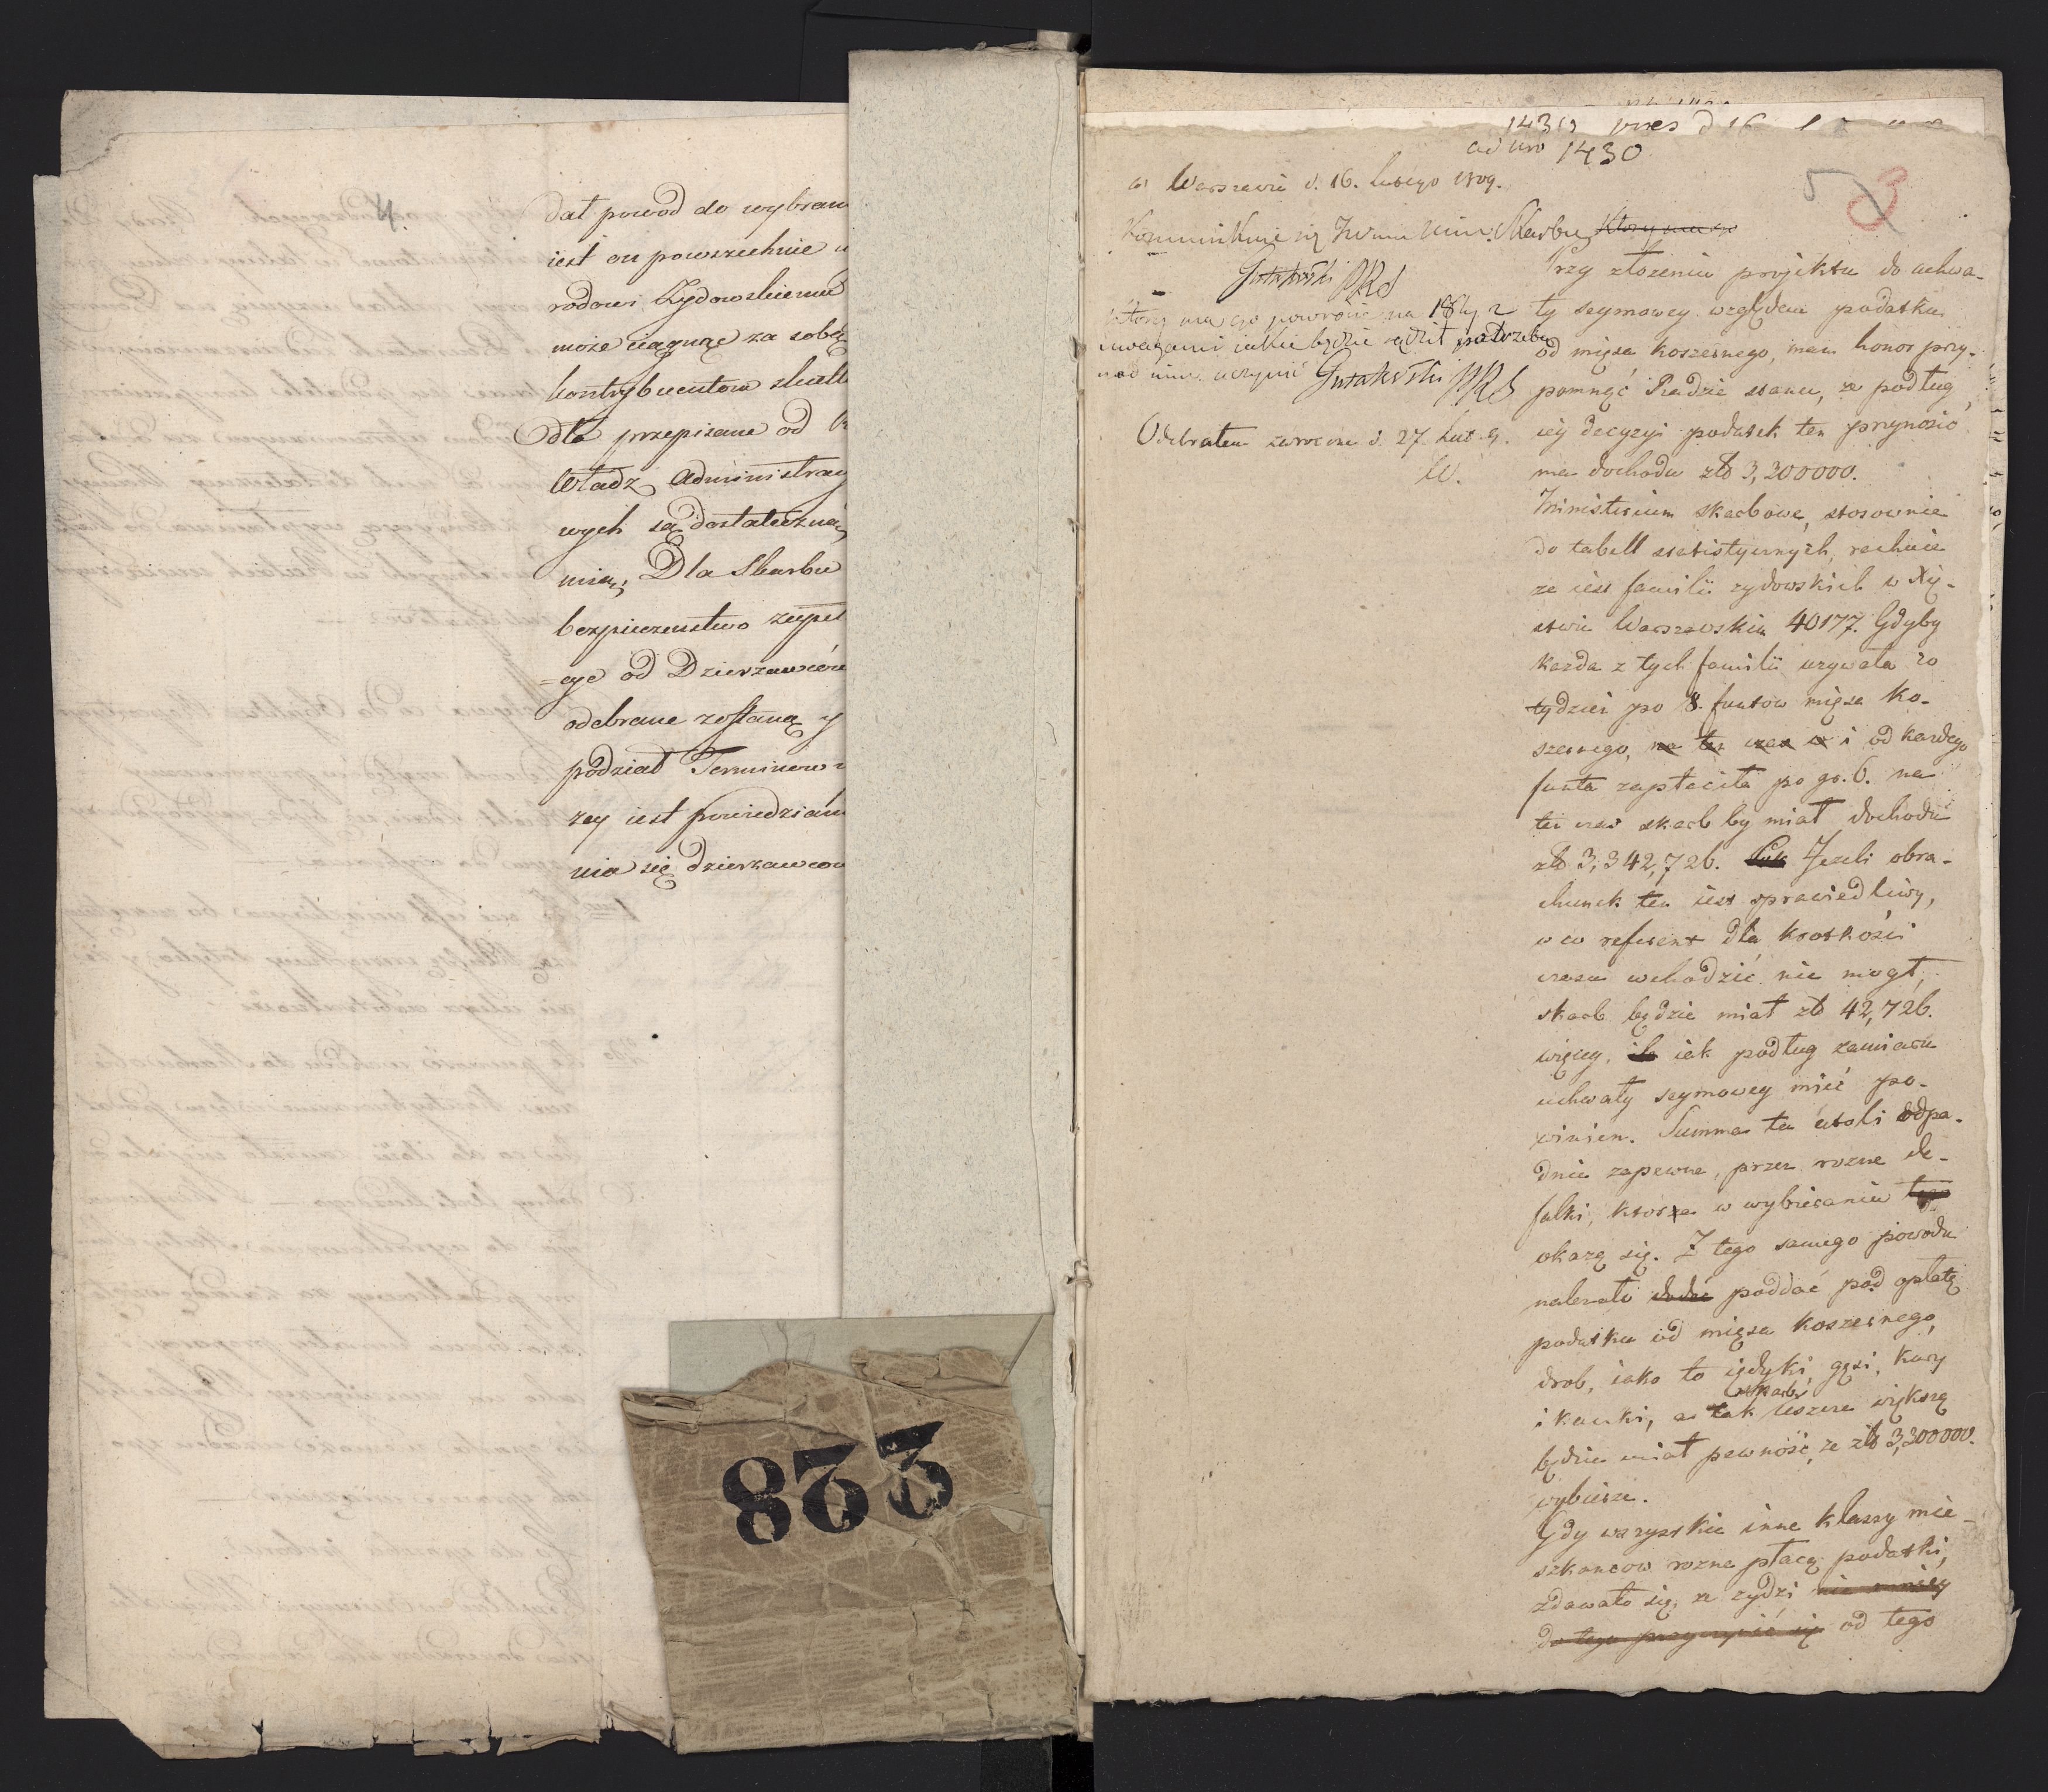 4.
dał powod do wybran
iest on powszechnie
rodowi Zydowskiemu
może ciągnąć za sobą
kontrybuentow
dla przepisane od
Władz Administracy
wych są dostateczne
Dla Skarbu
bezpieczenstwo zupeł
cye od Dzierzawców
odebrane zostaną y
podział Terminow
zey iest powiedzian
nia się dzierzawcow
823
1431 pres d 16
ad nro 1430
5
3
w Warszawie d. 16. lutego 1809.
Kommunikuie się JWmu Min: Skarbu
Gutakowski PRS
ktory ma go powrocic na 18ty z
uwagami iakie będzie sądził potrzebę
nad nim uczynić Gutakowski PRS
Odebrałem zwrocone d. 27 Lut.
Przy złożeniu projektu do uchwa-
ły seymowey względem podatku
od mięsa koszernego, mam honor przy-
pomnąć Radzie stanu, ze podług
iey decyzyi podatek ten przynosić
ma dochodu złp 3,300000.
Ministerium skarbowe, stosownie
do tabell statistycznych, rachuie
ze iest familii zydowskich w Xię-
stwie Warszawskim 40177. Gdyby
kazda z tych familii uzywała co
tydzień po 8. funtow mięsa ko-
szernego, na ten czas w i od kazdego
funta zapłaciła po gr. 6. na
ten czas skarb by miał dochodu
złp 3,342,726. Jezeli obra-
chunek ten iest sprawiedliwy,
w co referent dla krotkości
czasu wchodzić nie mogł,
skarb będzie miał złp 42,726.
więcey, iak podług zamiaru
uchwały seymowey mieć po-
winien. Summa ta atoli odpa-
dnie zapewne, przez rozne de-
falki, ktore w wybieraniu tego
okazą się. Z tego samego powodu
nalezało dodać poddać pod opłatę
podatku od mięsa koszernego,
drob, iako to iędyki, gęsi, kury
skarb
i kaczki, a tak leszcze większą
będzie miał pewność, ze złp 3,300000.
wybierze.
Gdy wszystkie inne klassy mie-
szkancow rozne płacą podatki,
zdawało się, ze zydzi nie mniey
do tego przyczynić się od tego